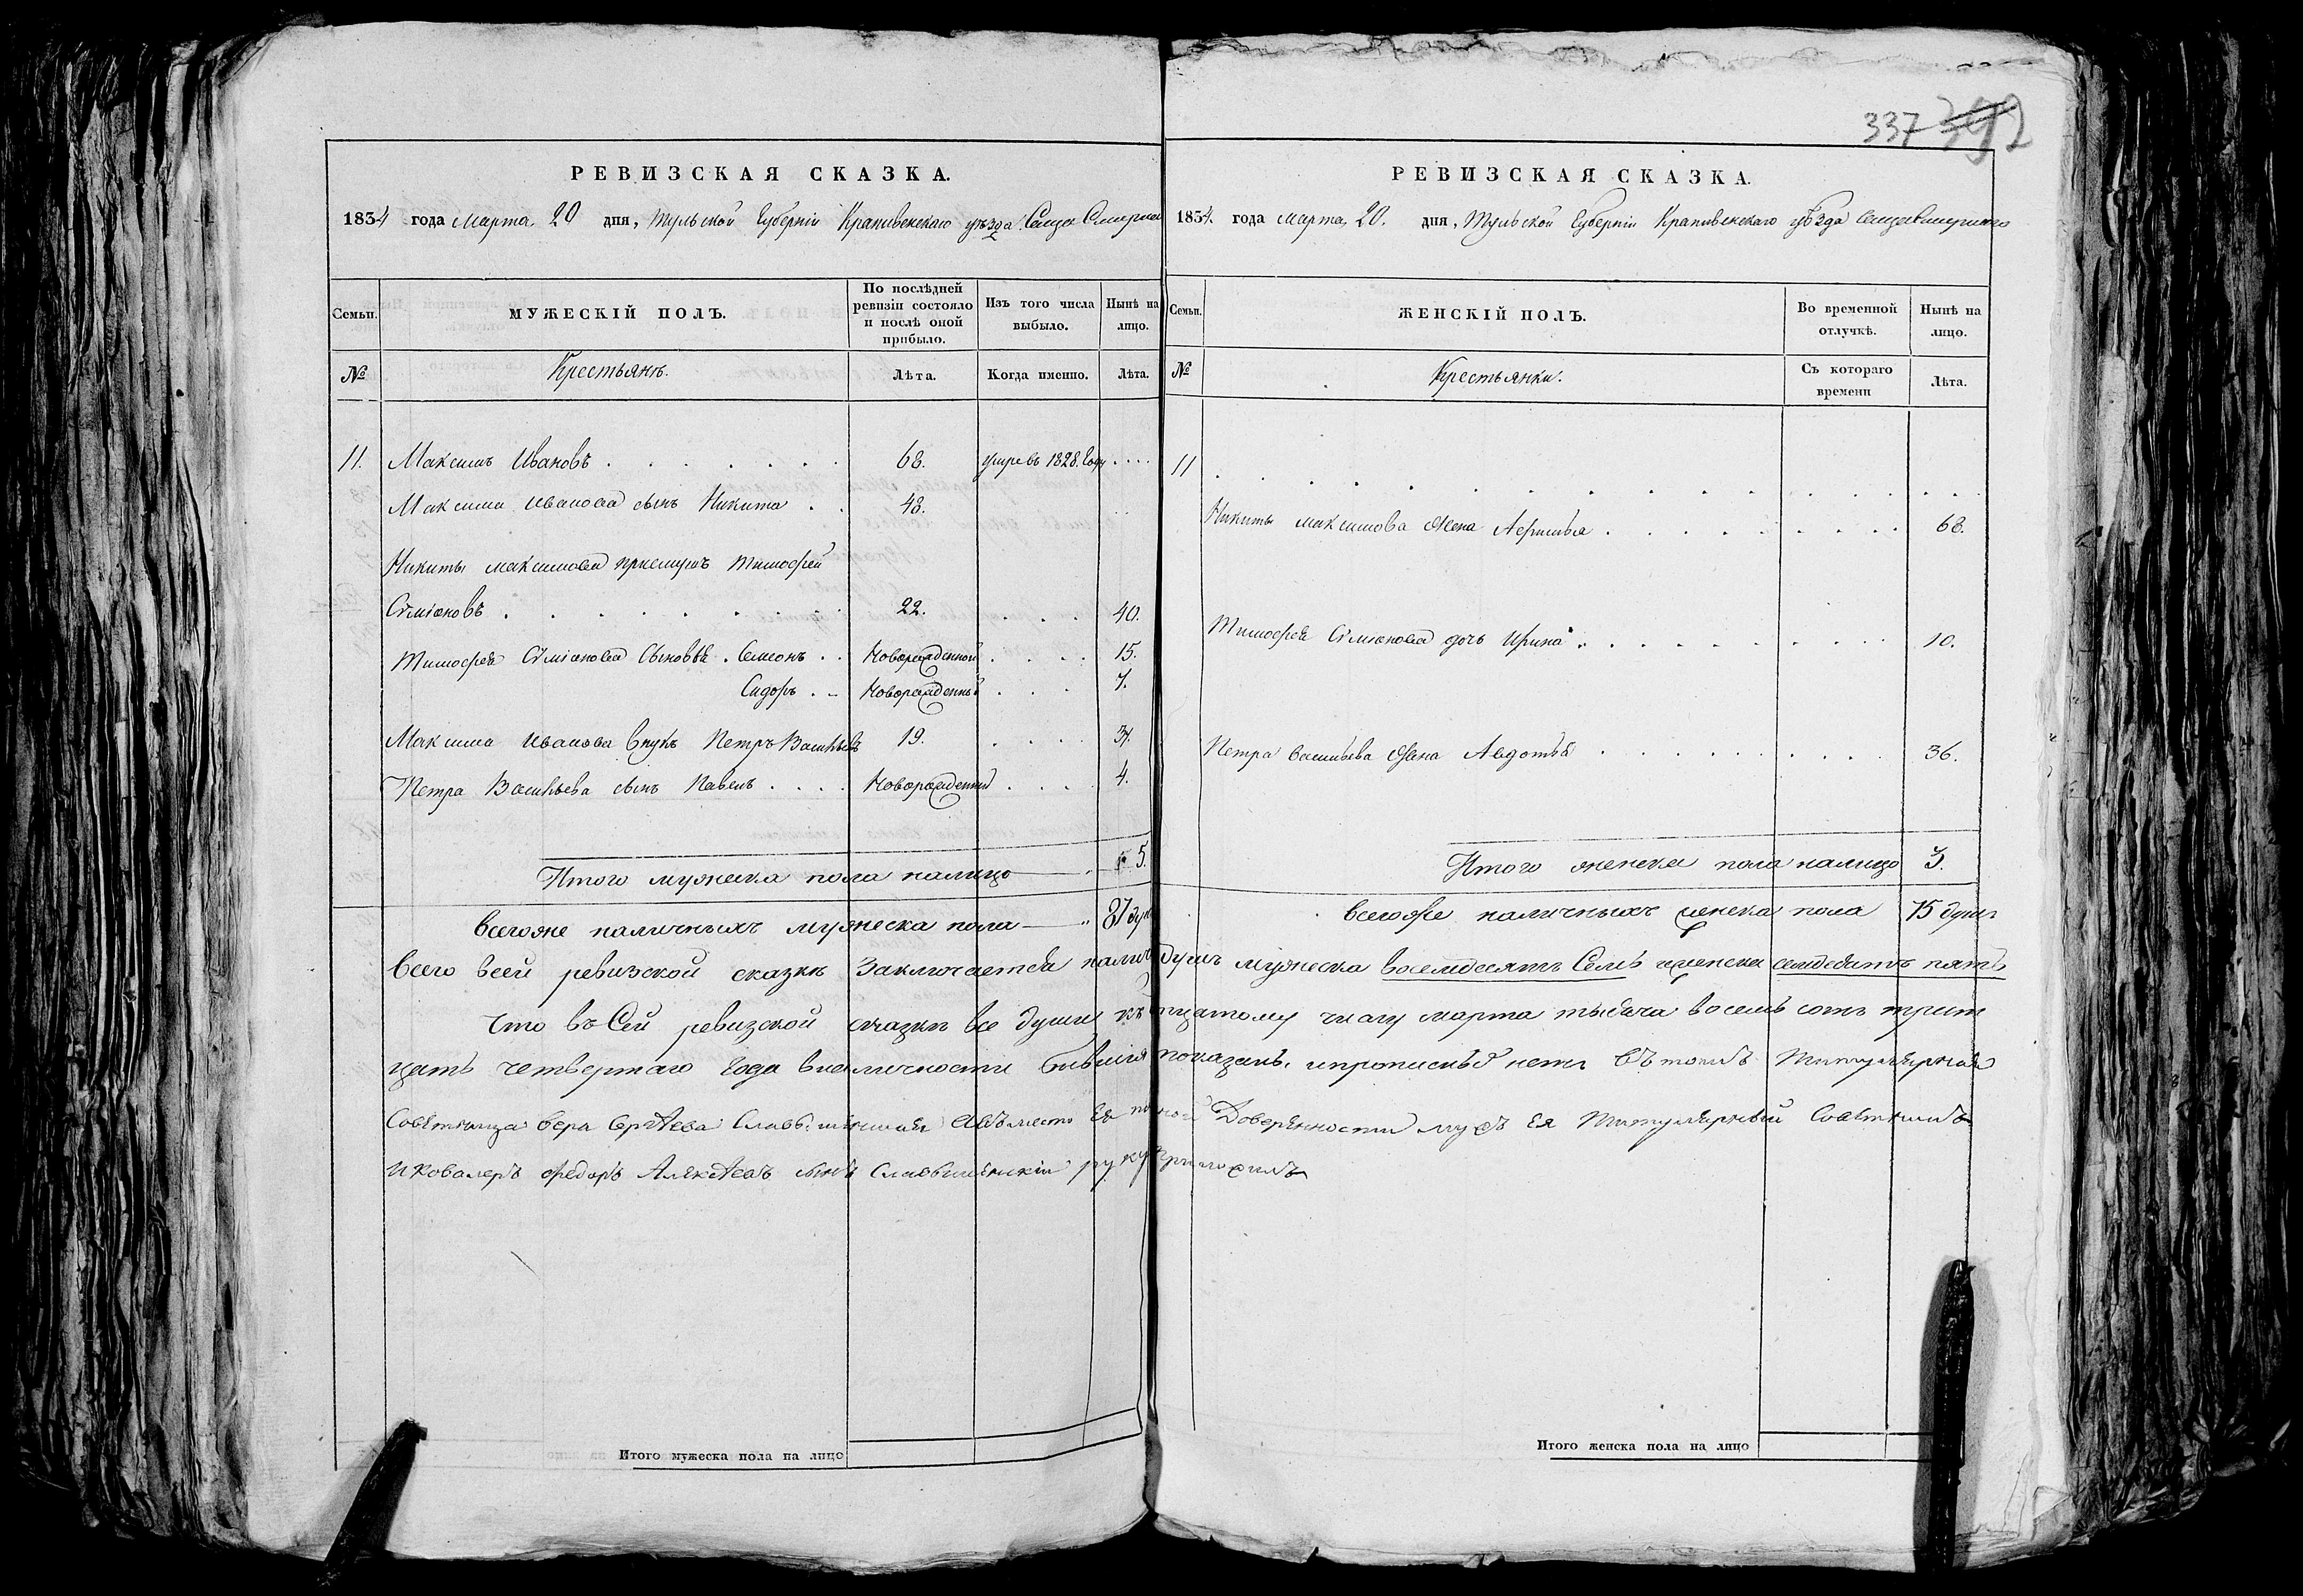 337 392
РЕВИЗСКАЯ СКАЗКА.
1834 года Марта 20 дня, Тульской Губерніи Крапивенскаго уѣзда Сельца
Семьи. МУЖЕСКІЙ ПОЛЪ. По послѣдней ревизіи состояло и послѣ оной прибыло. Изъ того числа выбыло. Нынѣ на лицо.
№ Крестьянъ. Лѣта. Когда именно. Лѣта.
11. Максимъ Ивановъ 68. умре въ 1828. Году
Максима Иванова сынъ Никита 48.
Никиты Максимова приемышъ Тимофей
Симіоновъ 22. 40.
Тимофея Симіонова Сыновья Семионъ Новорожденной 15.
Сидоръ Новорожденный 7.
Максима Иванова Внукъ Петръ Васильевъ 19. 37.
Петра Васильева сынъ Павелъ Новорожденный 4.
Итого мужеска пола налицо 5.
Всегоже наличныхъ мужеска пола 87 душ
РЕВИЗСКАЯ СКАЗКА.
1834. года Марта 20. дня, Тульской Губерніи Крапивенскаго уѣзда
Семьи. ЖЕНСКІЙ ПОЛЪ. Во временной отлучкѣ. Нынѣ на лицо.
№ Крестьянки. Съ котораго времени Лѣта.
11
Никиты Максимова Жена 68.
Тимофея Симионова дочь Ирина 10.
Петра Васильева Жена Авдотья 36.
Итого женска пола налицо 3.
Всегоже наличныхъ женска пола 75 душъ
Всего всей ревизской сказкѣ Заключается налич душъ мужеска восемдесятъ Семь и женска семдесятъ пять
Что въ Сей ревизской сказки все души къ пятому числу марта тысяча восемь сотъ трит
цать четвертаго Года в наличности бывшія показаны, и прописныхъ нетъ Въ томъ Титулярная
Совѣтница Вера Сергѣева а вместо Ея по Доверенности мужъ Ея Титулярный Совѣтникъ
и Ковалеръ Федоръ Алексѣевъ сынъ руку приложилъ
Итого мужеска пола на лицо
Итого женска пола на лицо